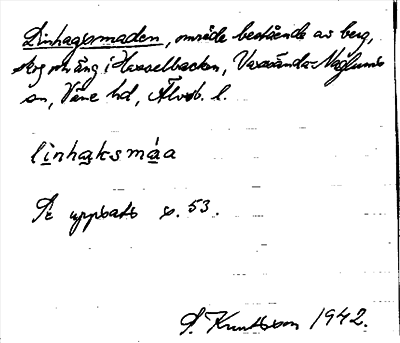 Linhagsmaden, område bestående av berg,
skog och äng i Hasselbacken, Vassända-Naglums
sn, Väne hd, Älvsb. l.
linhaksmáa
Se uppsats s. 53.
S. Knutsson 1942.